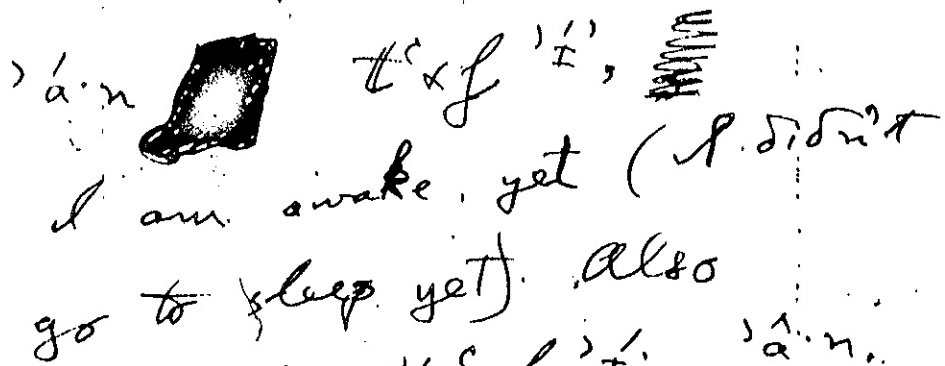 ʾá·n tʿxf ʾíʾ,
I am awake, yet (I didn't
go to sleep yet). Also
ʾâ·n.